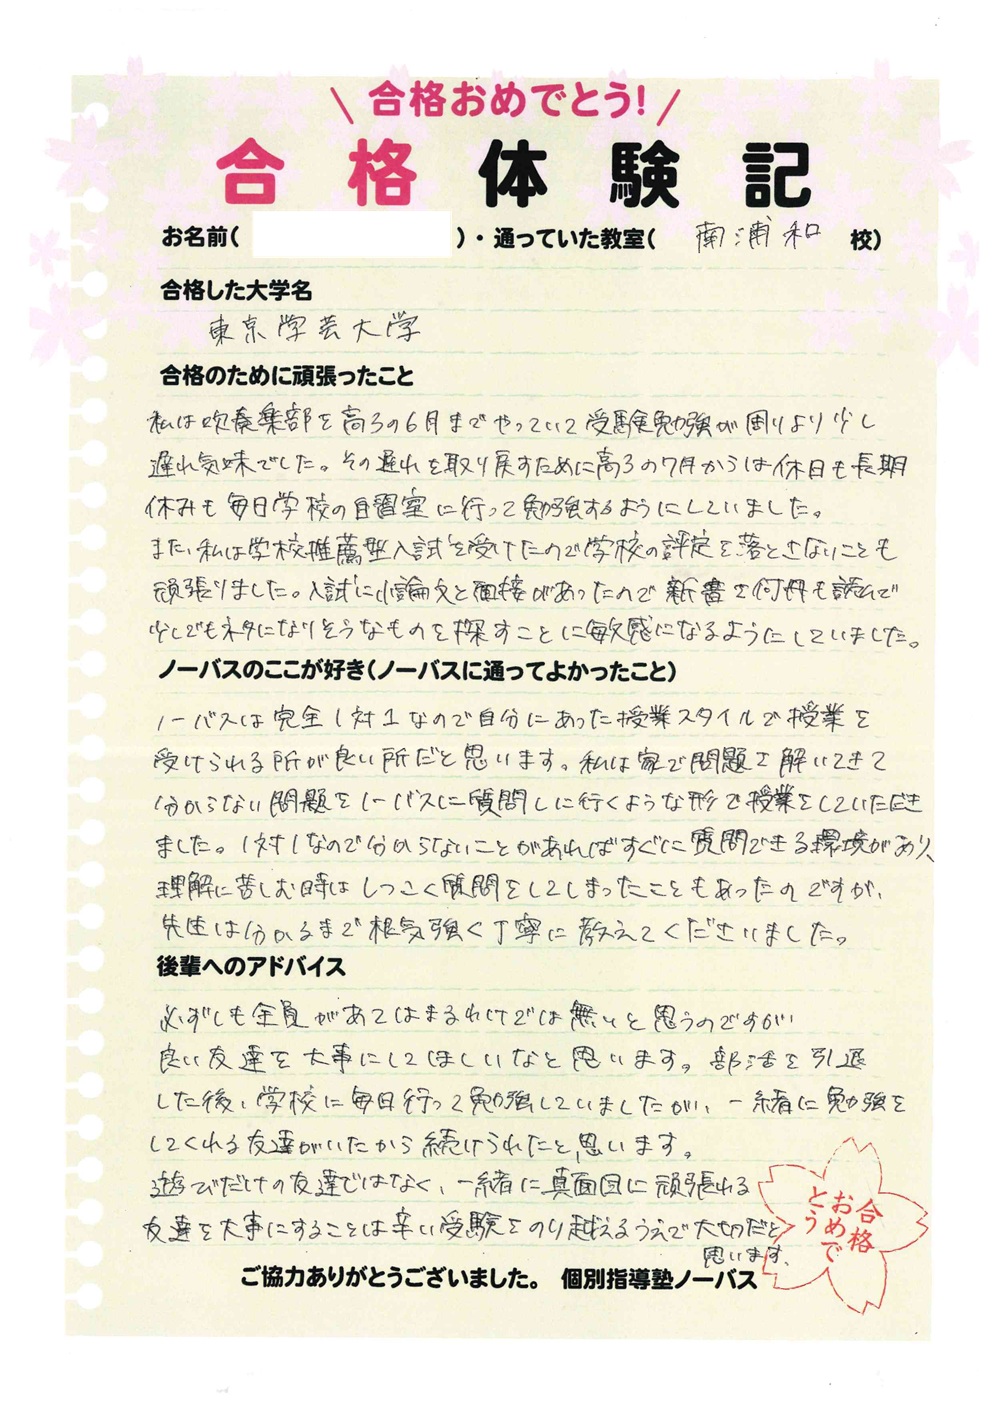 合格おめでとう!
合格体験記
お名前( )・通っていた教室( 南浦和 校)
合格した大学名
東京学芸大学
合格のために頑張ったこと
私は吹奏楽部を高3の6月までやっていて受験勉強が周りより少し
遅れ気味でした。その遅れを取り戻すために高3の7月からは休日も長期
休みも毎日学校の自習室に行って勉強するようにしていました。
また、私は学校推薦型入試を受けたので学校の評定を落とさないことも
頑張りました。入試に小論文と面接があったので新書を何冊も読んで
少しでもネタになりそうなものを探すことに敏感になるようにしていました。
ノーバスのここが好き(ノーバスに通ってよかったこと)
ノーバスは完全1対1なので自分にあった授業スタイルで授業を
受けられる所が良い所だと思います。私は家で問題を解いてきて
分からない問題をノーバスに質問しに行くような形で授業をしていただき
ました。1対1なので分からないことがあればすぐに質問できる環境があり、
理解に苦しむ時はしつこく質問をしてしまったこともあったのですが、
先生は分かるまで根気強く丁寧に教えてくださいました。
後輩へのアドバイス
必ずしも全員があてはまるわけでは無いと思うのですが、
良い友達を大事にしてほしいなと思います。部活を引退
した後、学校に毎日行って勉強していましたが、一緒に勉強を
してくれる友達がいたから続けられたと思います。
遊びだけの友達ではなく、一緒に真面目に頑張れる
友達を大事にすることは辛い受験をのり越えるうえで大切だと
思います。
合格
おめで
とう
ご協力ありがとうございました。 個別指導塾ノーバス